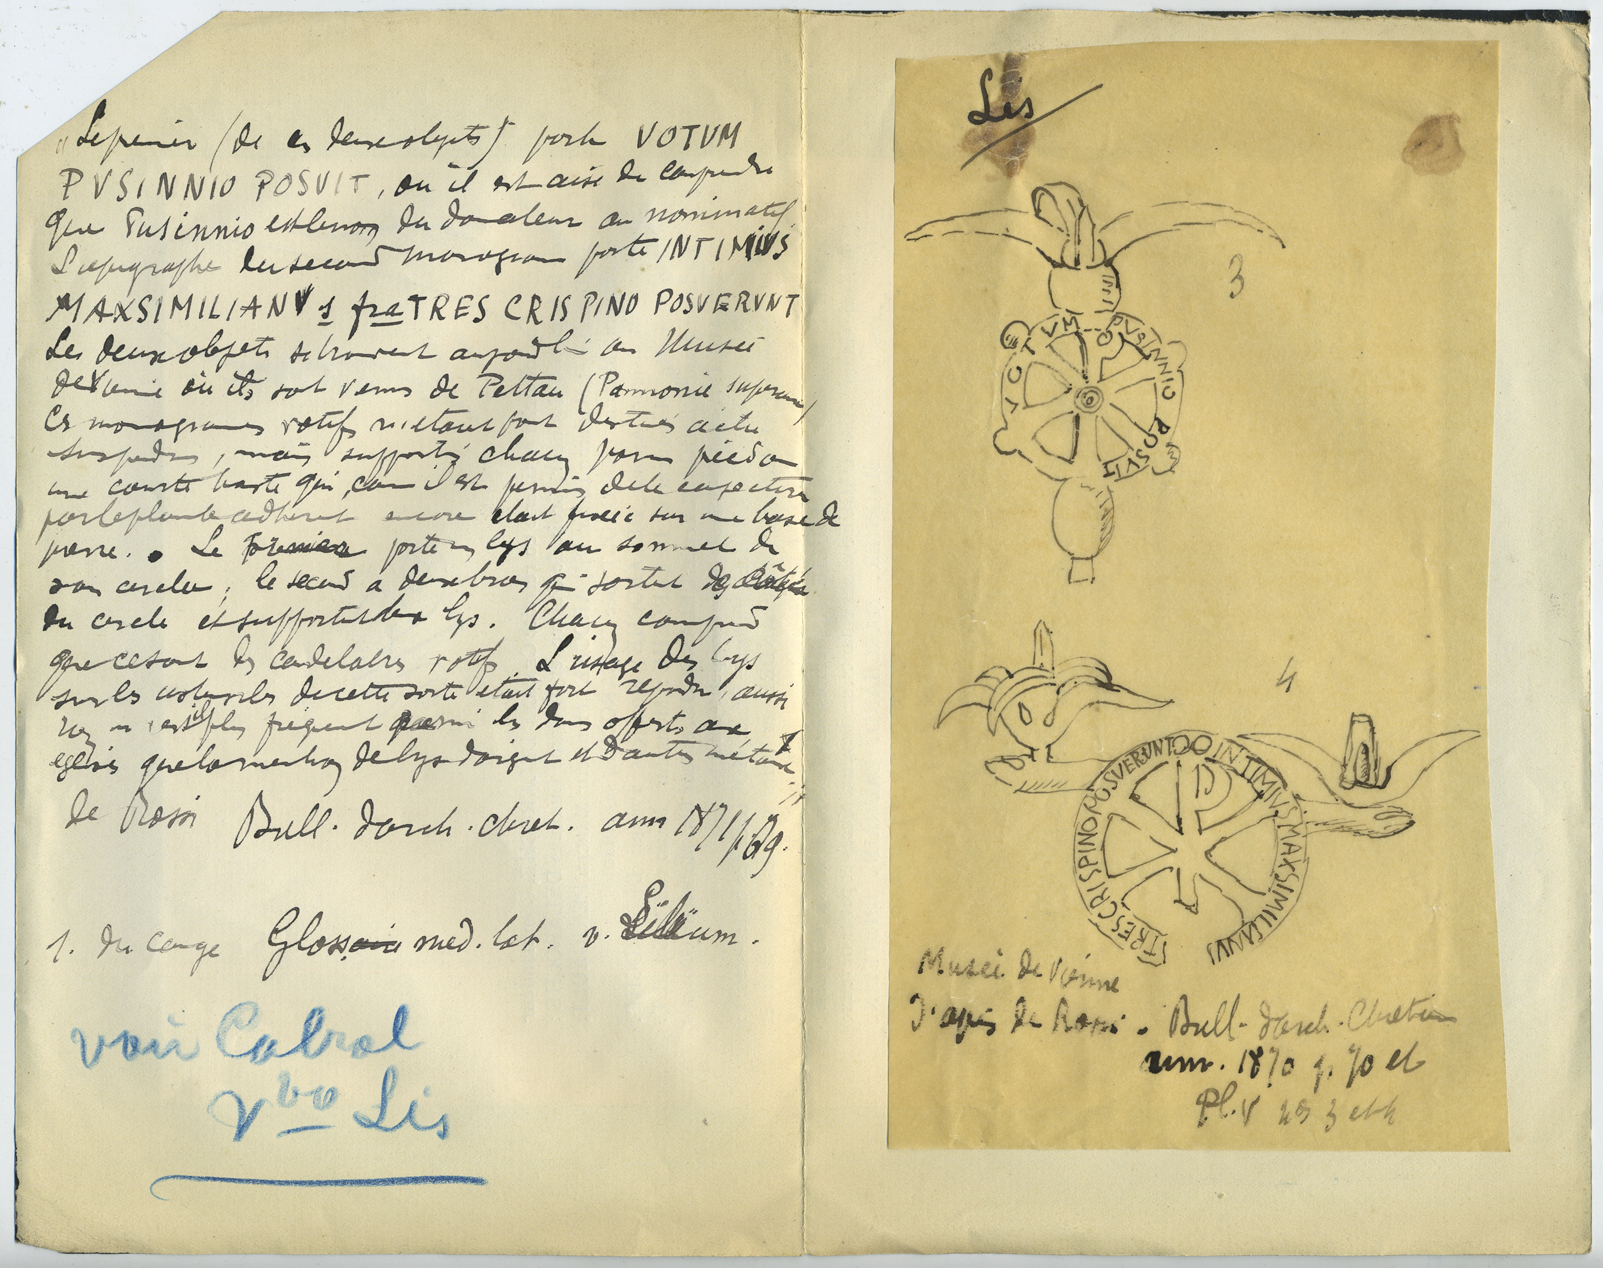 „Le premier (de ces deux objets) porte VOTVM
PVSINNIO POSVIT, où il est aisé de comprendre
que Pusinnio est le nom du donateur au nominatif
L'épigraphe du second monogramme porte INTIMVS
MAXSIMILIANVs fraTRES CRISPINO POSVERVNT
Les deux objets se trouvent aujourd'hui au Musée
de Vienne où ils sont venus de Pettau (Pannonie supérieure)
Ces monogrammes votifs n'étaient point destinés à être
suspendus, mais supportés chacun par un pied ou
une courte haste qui, comme il est permis de le conjecturer
par le plomb adhérent encore était fixée sur une base de
pierre. Le premier porte un lys au sommet de
son cercle; le second a deux bras qui sortent des côtés
du cercle et supportent des lys. Chacun comprend
que ce sont des candélabres votifs. L'usage des lys
sur les ustensiles de cette sorte était fort répandu, aussi
rien n'est il plus fréquent parmi les dons offerts aux
églises que la mention de lys d'argent et d'autres métaux
de Rossi Bull. d'arch. chret. ann 1871/p. 69.
1. du Cange Glossaire med. lat. v. Lilium.
voir Cabrol
Vbo Lis
Lis
3
VOTVM PVSINNIO POSVIT
4
INTIMVS MAXSIMILIANVS
TRES CRISPINO POSVERVNT
Musée de Vienne
D'après de Rossi. Bull. d'arch. Chrétienne
ann. 1870 p. 70 et
Pl. V nos 3 et 4